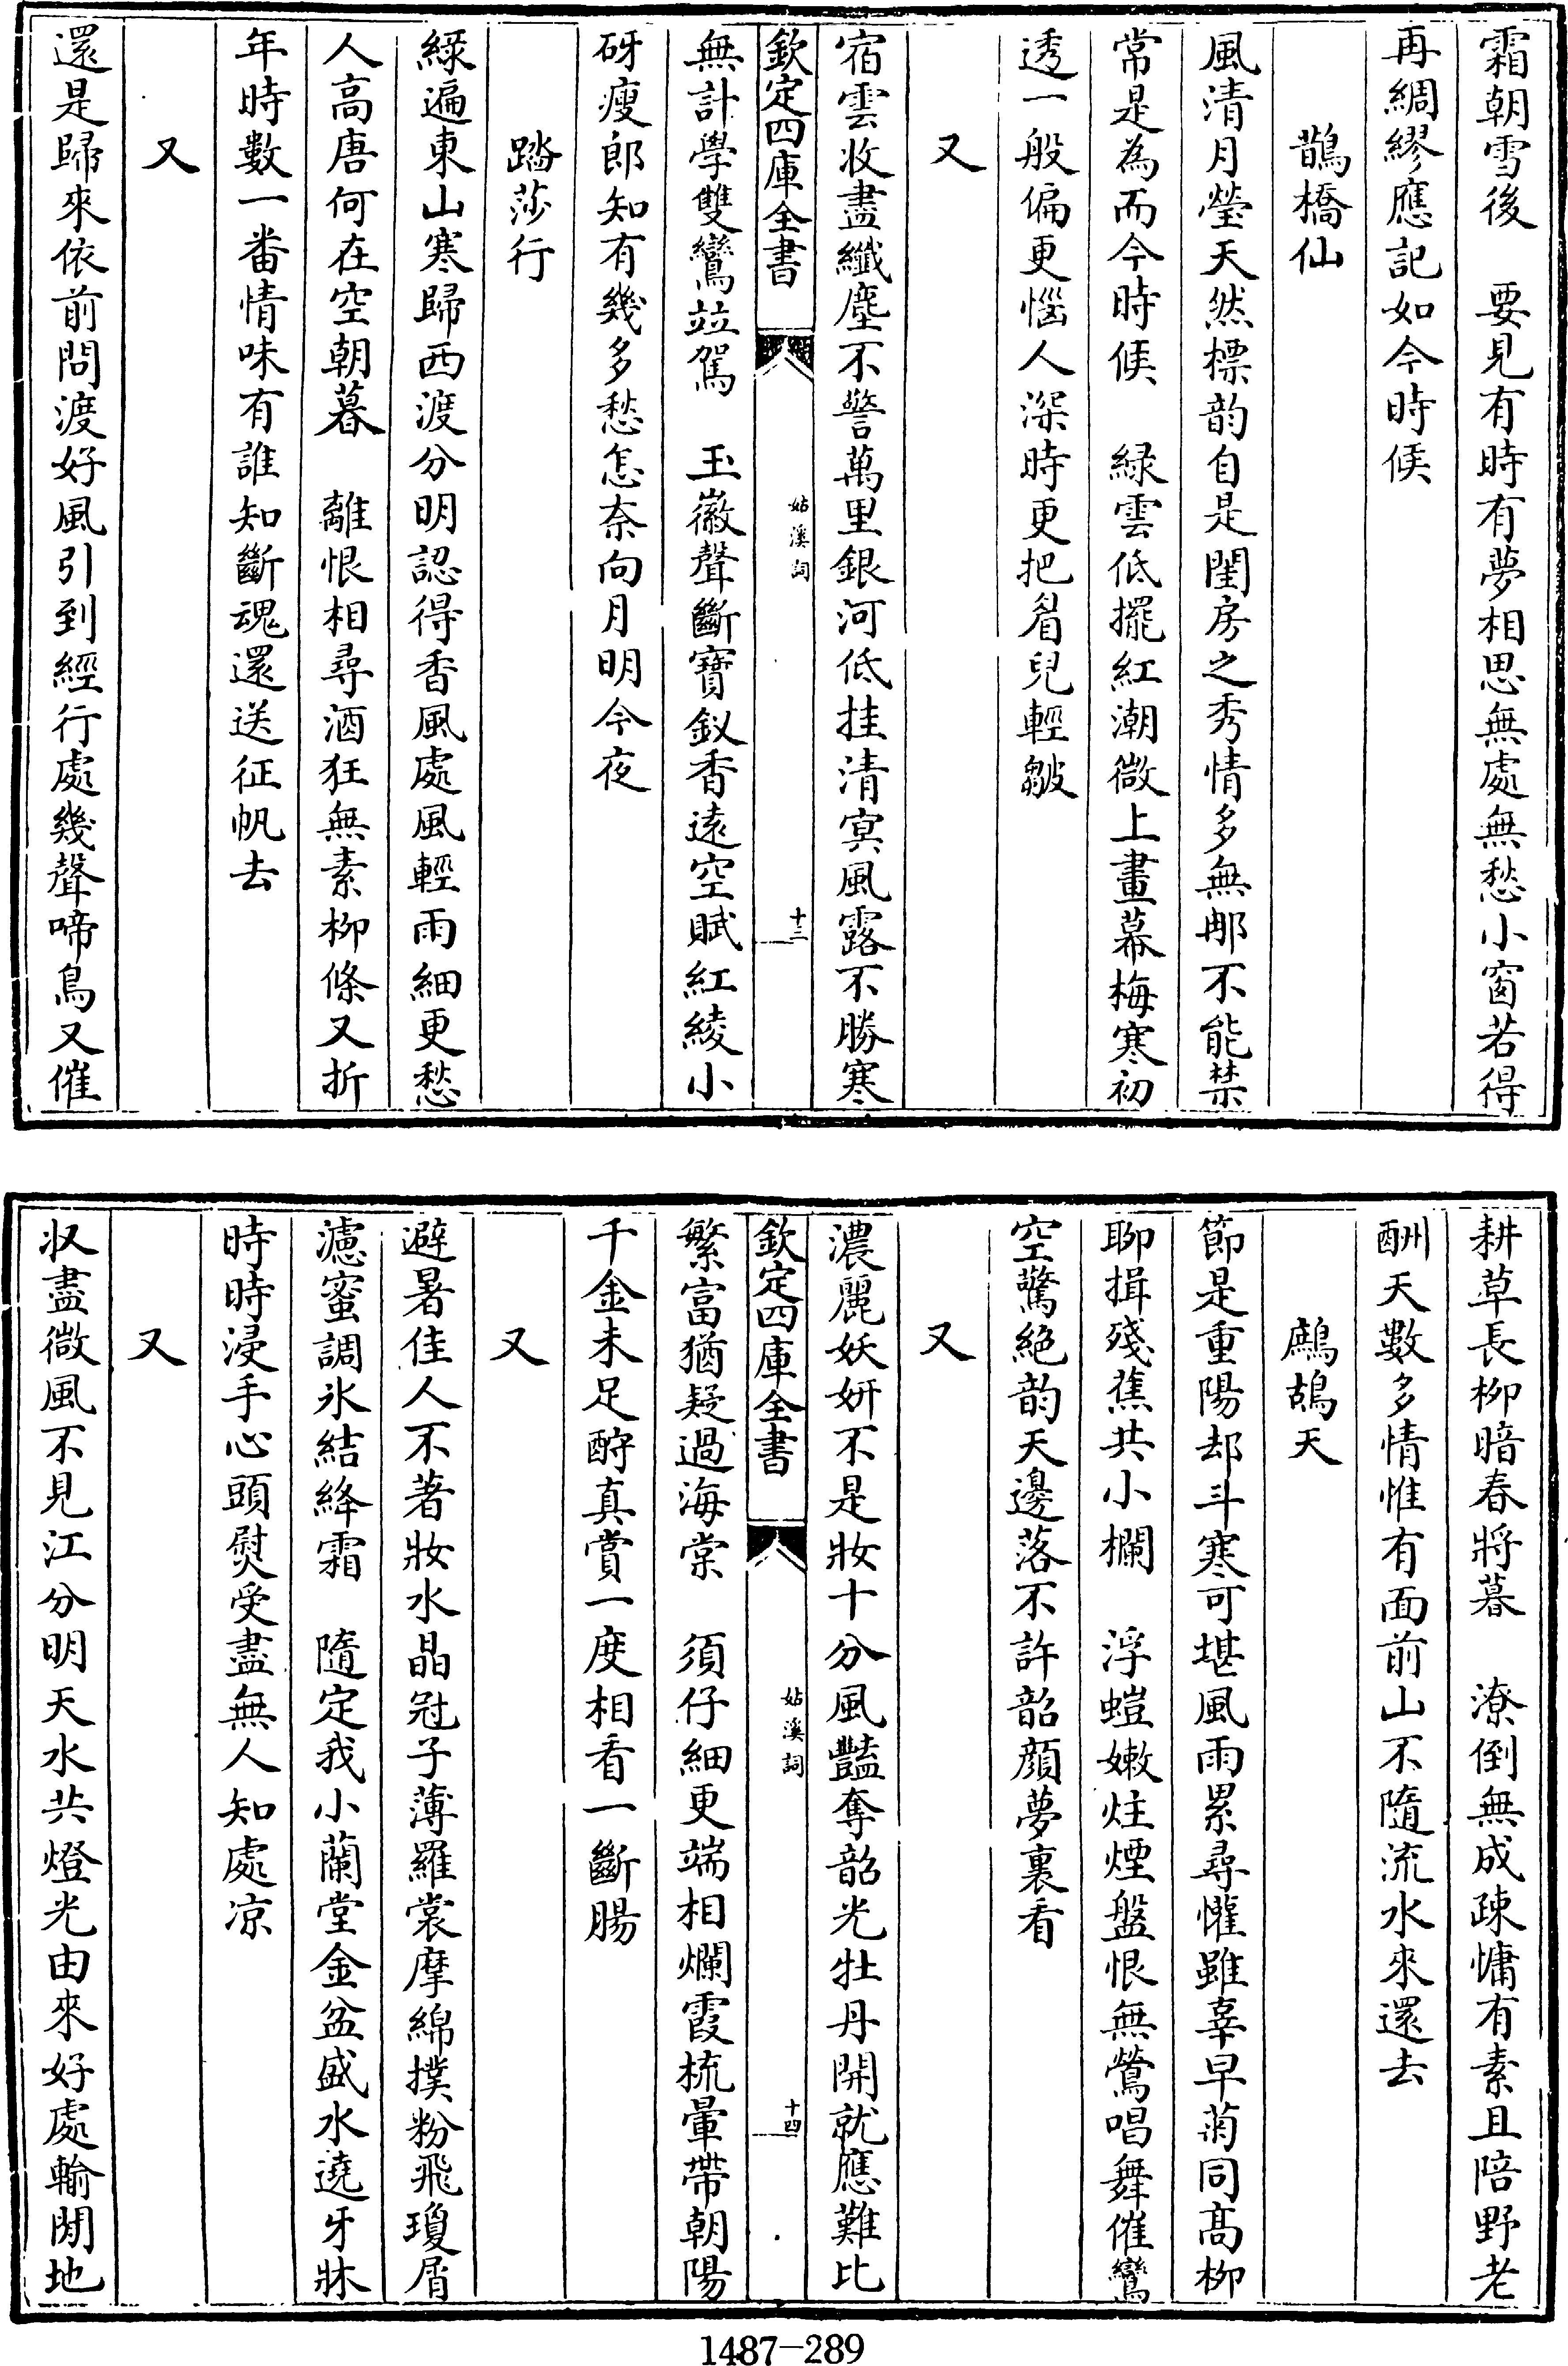 霜朝雪後　要見有時有夢相思無處無愁小窗若得
再綢繆應記如今時候
鵲橋仙
風清月瑩天然標韵自是閨房之秀情多無那不能禁
常是為而今時候　緑雲低擺紅潮微上畫幕梅寒初
透一般偏更惱人深時更把眉兒輕皺
又
宿雲收盡纖塵不警萬里銀河低挂清㝠風露不勝寒
欽定四庫全書
姑溪詞
十三
無計學雙鸞竝駕　玉徽聲斷寶釵香遠空賦紅綾小
砑瘦郎知有幾多愁怎奈向月明今夜
踏莎行
緑遍東山寒歸西渡分明認得香風處風輕雨細更愁
人高唐何在空朝暮　離恨相尋酒狂無素柳條又折
年時數一番情味有誰知斷魂還送征帆去
又
還是歸來依前問渡好風引到經行處幾聲啼鳥又催
耕草長柳暗春將暮　潦倒無成疎慵有素且陪野老
酬天數多情惟有面前山不隨流水來還去
鷓鴣天
節是重陽却斗寒可堪風雨累尋懽雖辜早菊同髙柳
聊揖殘蕉共小欄　浮螘嫩炷煙盤恨無鶯唱舞催鸞
空驚絶韵天邊落不許韶顔夢裏看
又
濃麗妖妍不是妝十分風豔奪韶光牡丹開就應難比
欽定四庫全書
姑溪詞
十四
繁富猶疑過海棠　須仔細更端相爛霞梳暈帶朝陽
千金未足酧真賞一度相看一斷腸
又
避暑佳人不著妝水晶冠子薄羅裳摩綿撲粉飛瓊屑
濾蜜調氷結絳霜　隨定我小蘭堂金盆盛水遶牙牀
時時浸手心頭熨受盡無人知處凉
又
收盡微風不見江分明天水共燈光由來好處輸閒地
1487-289